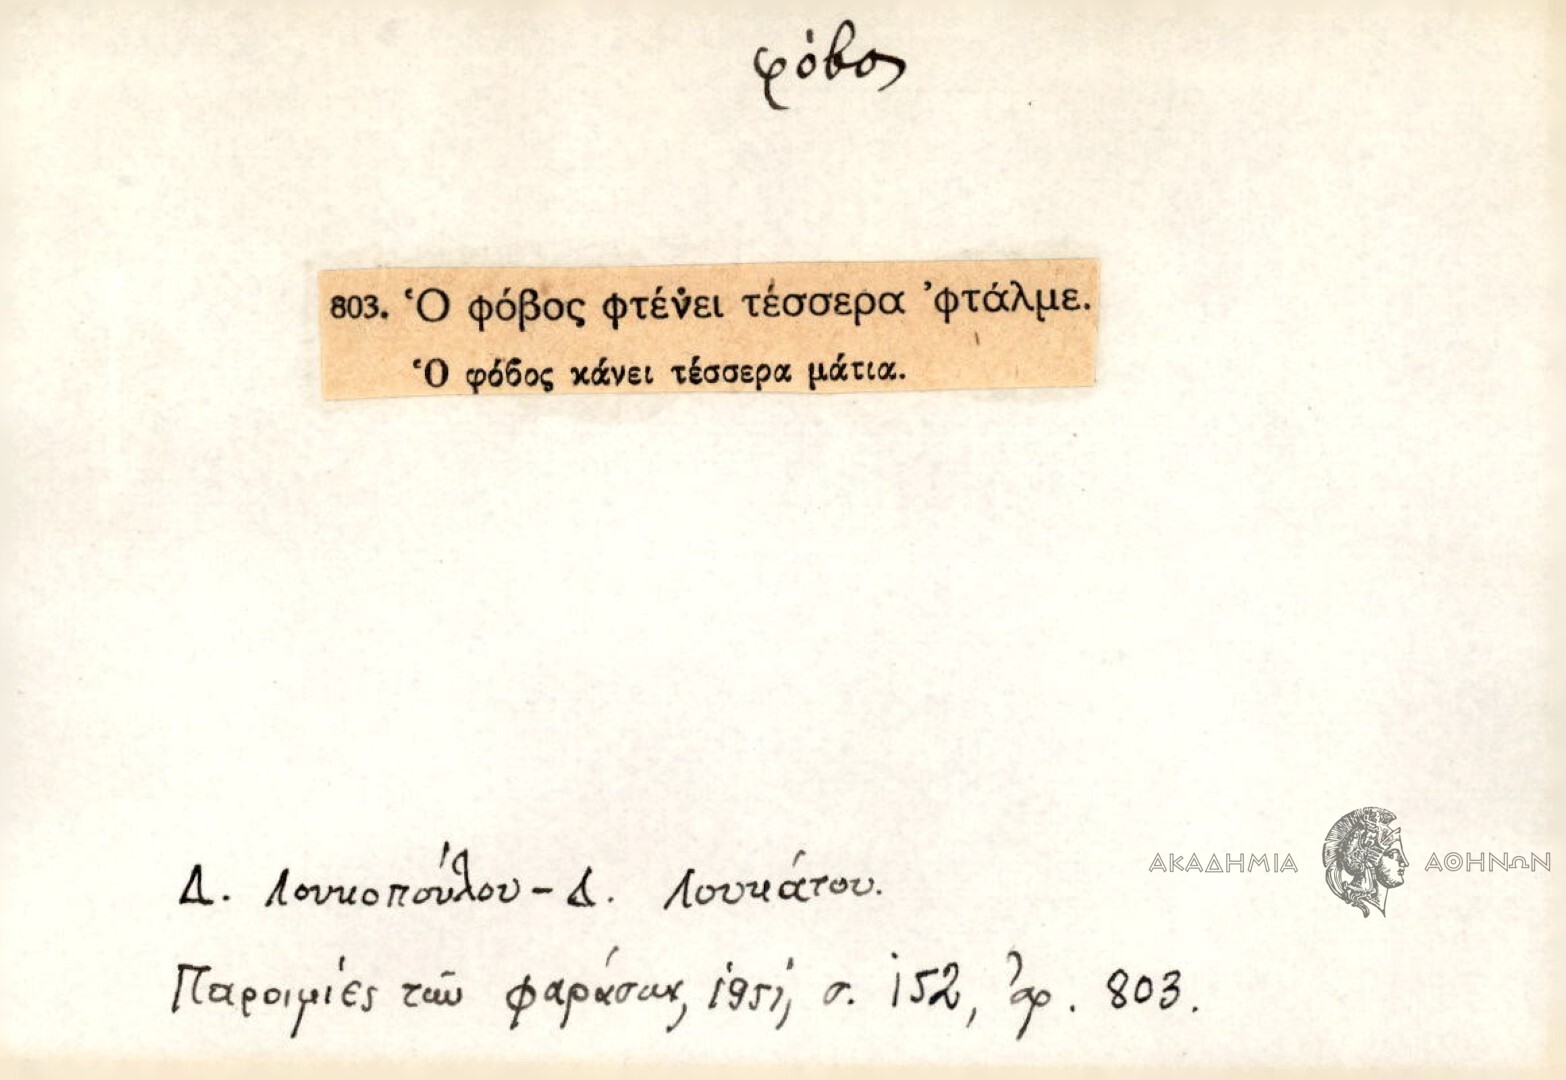 φόβος
803. Ὁ φόβος φτένει τέσσερα ᾽φτάλμε.
Ὁ φόβος κάνει τέσσερα μάτια.
ΑΚΑΔΗΜΙΑ ΑΘΗΝΩΝ
Δ. Λουκοπούλου - Δ. Λουκάτου.
Παροιμιές τῶν Φαράσων, 1951, σ. 152, ἀρ. 803.